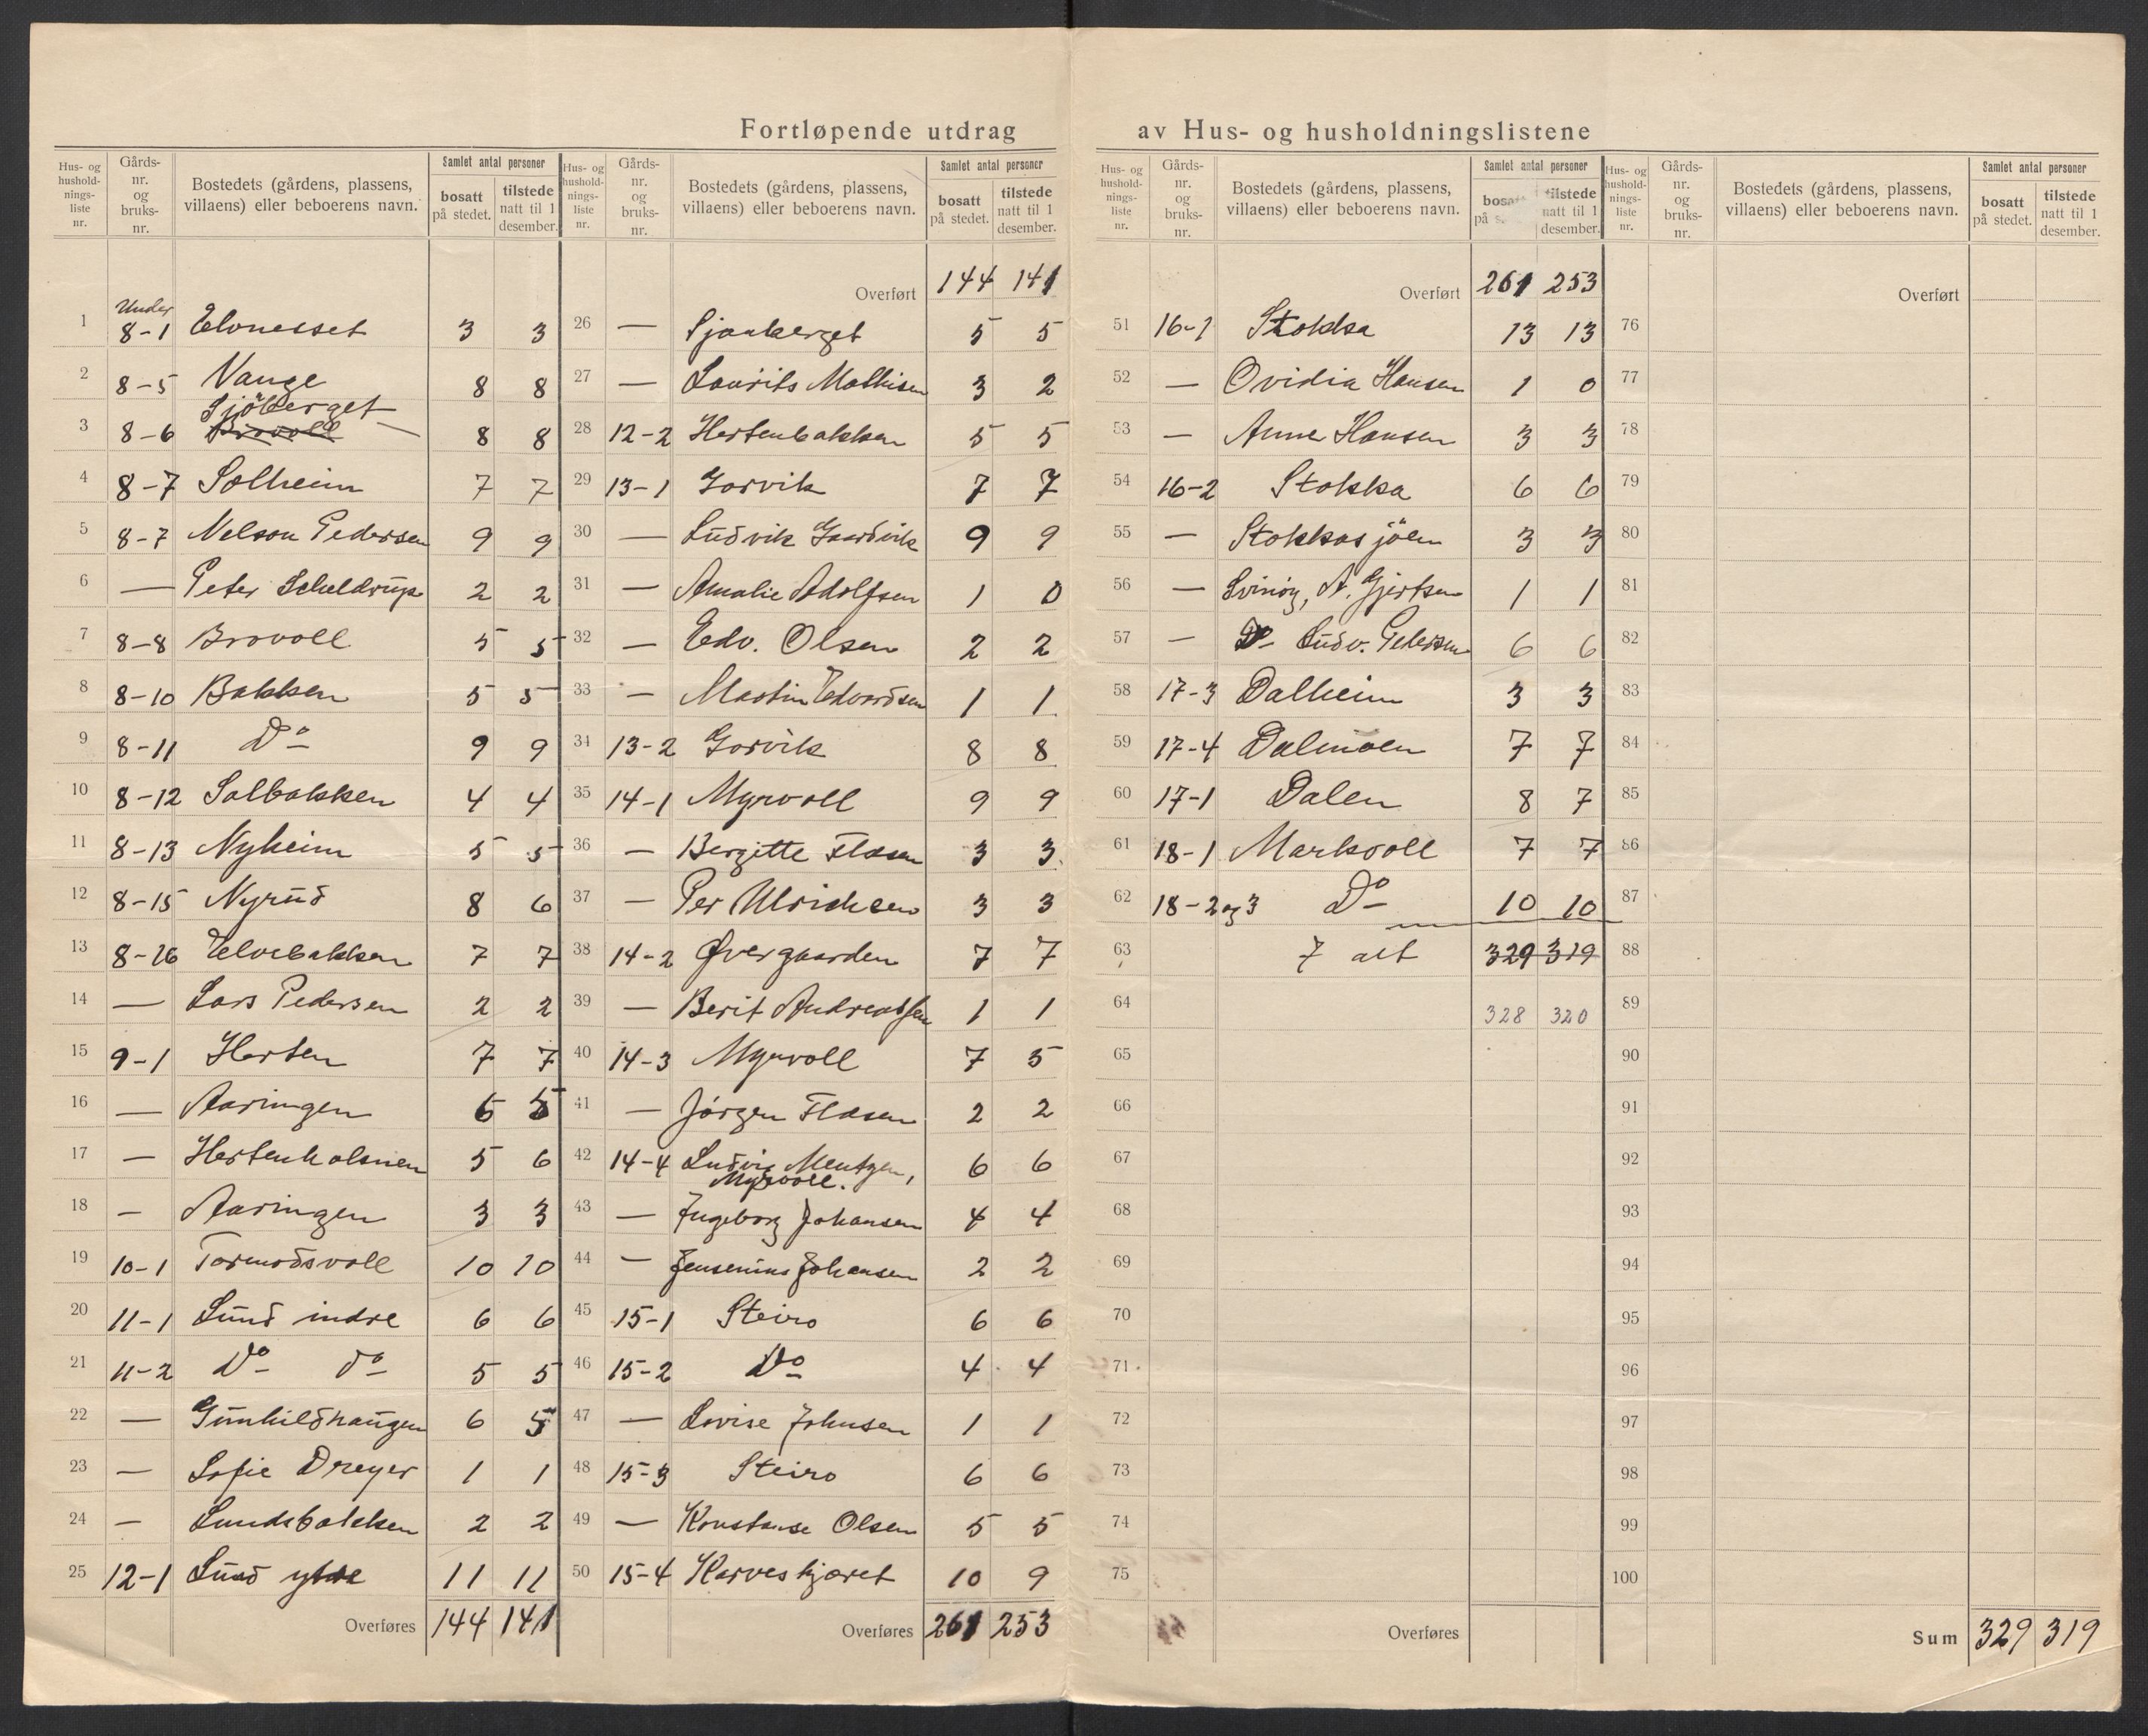 Fortløpende utdrag av Hus- og husholdningslistene
Hus- og husholdnings-liste nr. Gårds-nr. og bruks-nr. Bostedets (gårdens, plassens, villaens) eller beboerens navn. Samlet antal personer bosatt på stedet. tilstede natt til 1 desember.
1 Under 8-1 Elvnesset 3 3
2 8-5 Vange 8 8
3 8-6 Sjöberget Brovoll 8 8
4 8-7 Solheim 7 7
5 8-7 Nelson Pedersen 9 9
6 — Peter Scheldrup 2 2
7 8-8 Brovoll 5 5
8 8-10 Bakken 5 5
9 8-11 Do 9 9
10 8-12 Solbakken 4 4
11 8-13 Nyheim 5 5
12 8-15 Nyrud 8 6
13 8-16 Elvebakken 7 7
14 — Lars Pedersen 2 2
15 9-1 Herten 7 7
16 — Aaringen 6 5
17 — Hertenholmen 5 6
18 — Aaringen 3 3
19 10-1 Tormodsvoll 10 10
20 11-1 Lund indre 6 6
21 11-2 Do do 5 5
22 — Gunhildhaugen 6 5
23 — Sofie Dreyer 1 1
24 — Lundsbakken 2 2
25 12-1 Lund ytre 11 11
Overføres 144 141
Hus- og husholdnings-liste nr. Gårds-nr. og bruks-nr. Bostedets (gårdens, plassens, villaens) eller beboerens navn. Samlet antal personer bosatt på stedet. tilstede natt til 1 desember.
Overført 144 141
26 — Sjonberget 5 5
27 — Laurits Mathisen 3 2
28 12-2 Hertenbakken 5 5
29 13-1 Gorvik 7 7
30 — Ludvik Gaardvik 9 9
31 — Amalie Adolfsen 1 0
32 — Edv. Olsen 2 2
33 — Martin Edvardsen 1 1
34 13-2 Gorvik 8 8
35 14-1 Myrvoll 9 9
36 — Bergitte Elæsen 3 3
37 — Per Ulrichsen 3 3
38 14-2 Øvergaarden 7 7
39 — Berit Andreassen 1 1
40 14-3 Myrvoll 7 5
41 — Jørgen Elæsen 2 2
42 14-4 Ludvig Mentzen, Myrvoll. 6 6
43 — Ingeborg Johansen 4 4
44 — Jensenius Johansen 2 2
45 15-1 Steiro 6 6
46 15-2 Do 4 4
47 — Lovise Johnsen 1 1
48 15-3 Steiro 6 6
49 — Konstanse Olsen 5 5
50 15-4 Karveskjæret 10 9
Overføres 261 253
Hus- og husholdnings-liste nr. Gårds-nr. og bruks-nr. Bostedets (gårdens, plassens, villaens) eller beboerens navn. Samlet antal personer bosatt på tilstede natt til 1 desember.
Overført 261 253
51 16-1 Stokka 13 13
52 — Ovidia Hansen 1 0
53 — Anne Hansen 3 3
54 16-2 Stokka 6 6
55 — Stokkasjöen 3 3
56 — Svinöy, A. Gjertsen 1 1
57 — Do Ludv. Pedersen 6 6
58 17-3 Dalheim 3 3
59 17-4 Dalmoen 7 7
60 17-1 Dalen 8 7
61 18-1 Markvoll 7 7
62 18-2 og 3 Do 10 10
63 I alt 329 319
64 328 320
65
66
67
68
69
70
71
72
73
74
75
Overføres
Hus- og husholdnings-liste nr. Gårds-nr. og bruks-nr. Bostedets (gårdens, plassens, villaens) eller beboerens navn. Samlet antal personer bosatt på stedet. tilstede natt til 1 desember.
Overført
76
77
78
79
80
81
82
83
84
85
86
87
88
89
90
91
92
93
94
95
96
97
98
99
100
Sum 329 319